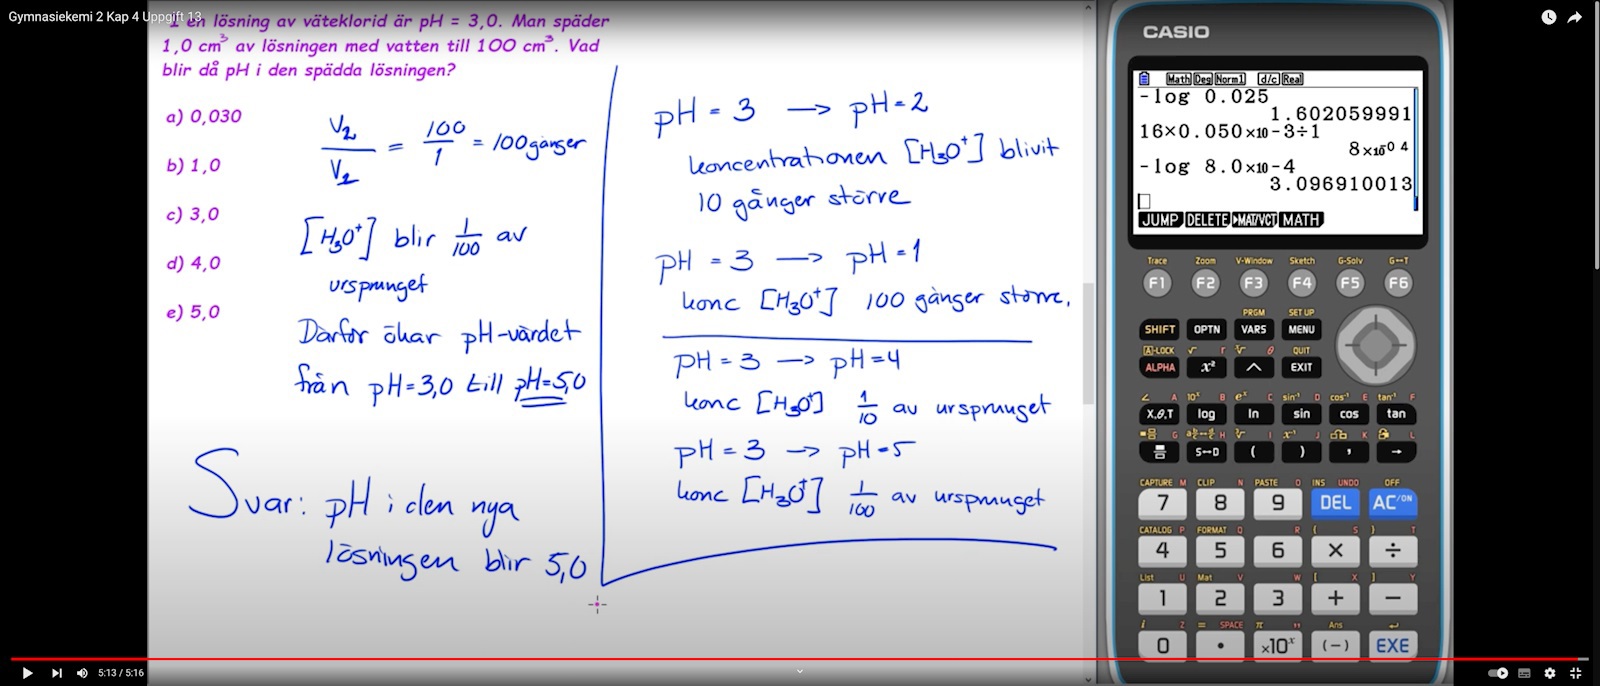 Gymnasiekemi 2 Kap 4 Uppgift 13
I en lösning av väteklorid är pH = 3,0. Man späder
1,0 cm³ av lösningen med vatten till 100 cm³. Vad
blir då pH i den spädda lösningen?
a) 0,030
b) 1,0
c) 3,0
d) 4,0
e) 5,0
V₂/V₂ = 100/1 = 100 gånger
[H₃O⁺] blir 1/100 av
ursprunget
Därför ökar pH-värdet
från pH=3,0 till pH=5,0
Svar: pH i den nya
lösningen blir 5,0
pH = 3 → pH=2
koncentrationen [H₃O⁺] blivit
10 gånger större
pH = 3 → pH=1
konc [H₃O⁺] 100 gånger större.
pH = 3 → pH=4
konc [H₃O⁺] 1/10 av ursprunget
pH = 3 → pH=5
konc [H₃O⁺] 1/100 av ursprunget
CASIO
Math Deg Norm1 d/c Real
-log 0.025
1.602059991
16×0.050×10-3÷1
8×10⁻⁰⁴
-log 8.0×10-4
3.096910013
JUMP DELETE ▶MAT/VCT MATH
Trace Zoom V-Window Sketch G-Solv G↔T
F1 F2 F3 F4 F5 F6
PRGM SET UP
SHIFT OPTN VARS MENU
A-LOCK √ r ˣ√ θ QUIT
ALPHA x² ^ EXIT
∠ A 10ˣ B eˣ C sin⁻¹ D cos⁻¹ E tan⁻¹ F
X,θ,T log ln sin cos tan
G H I J K L
S↔D ( ) , →
CAPTURE M CLIP N PASTE O INS UNDO OFF
7 8 9 DEL AC/ON
CATALOG P FORMAT Q R { S } T
4 5 6 × ÷
List U Mat V W [ X ] Y
1 2 3 + −
i Z = SPACE π " Ans
0 • ×10ˣ (−) EXE
5:13 / 5:16